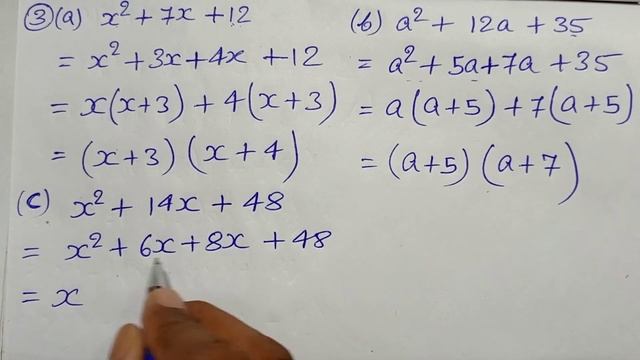 ③(a) x² + 7x + 12
= x² + 3x + 4x + 12
= x(x+3) + 4(x+3)
= (x+3) (x+4)
(b) a² + 12a + 35
= a² + 5a + 7a + 35
= a(a+5) + 7(a+5)
= (a+5) (a+7)
(c) x² + 14x + 48
= x² + 6x + 8x + 48
= x